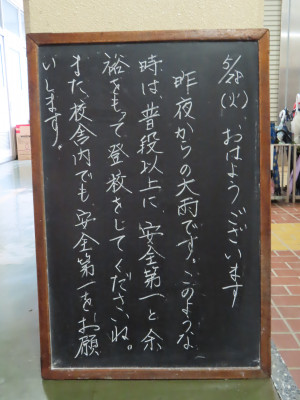 5/28(火) おはようございます
昨夜からの大雨です。このような
時は、普段以上に、安全第一と余
裕をもって登校をしてくださいね。
また、校舎内でも、安全第一をお願
いします。